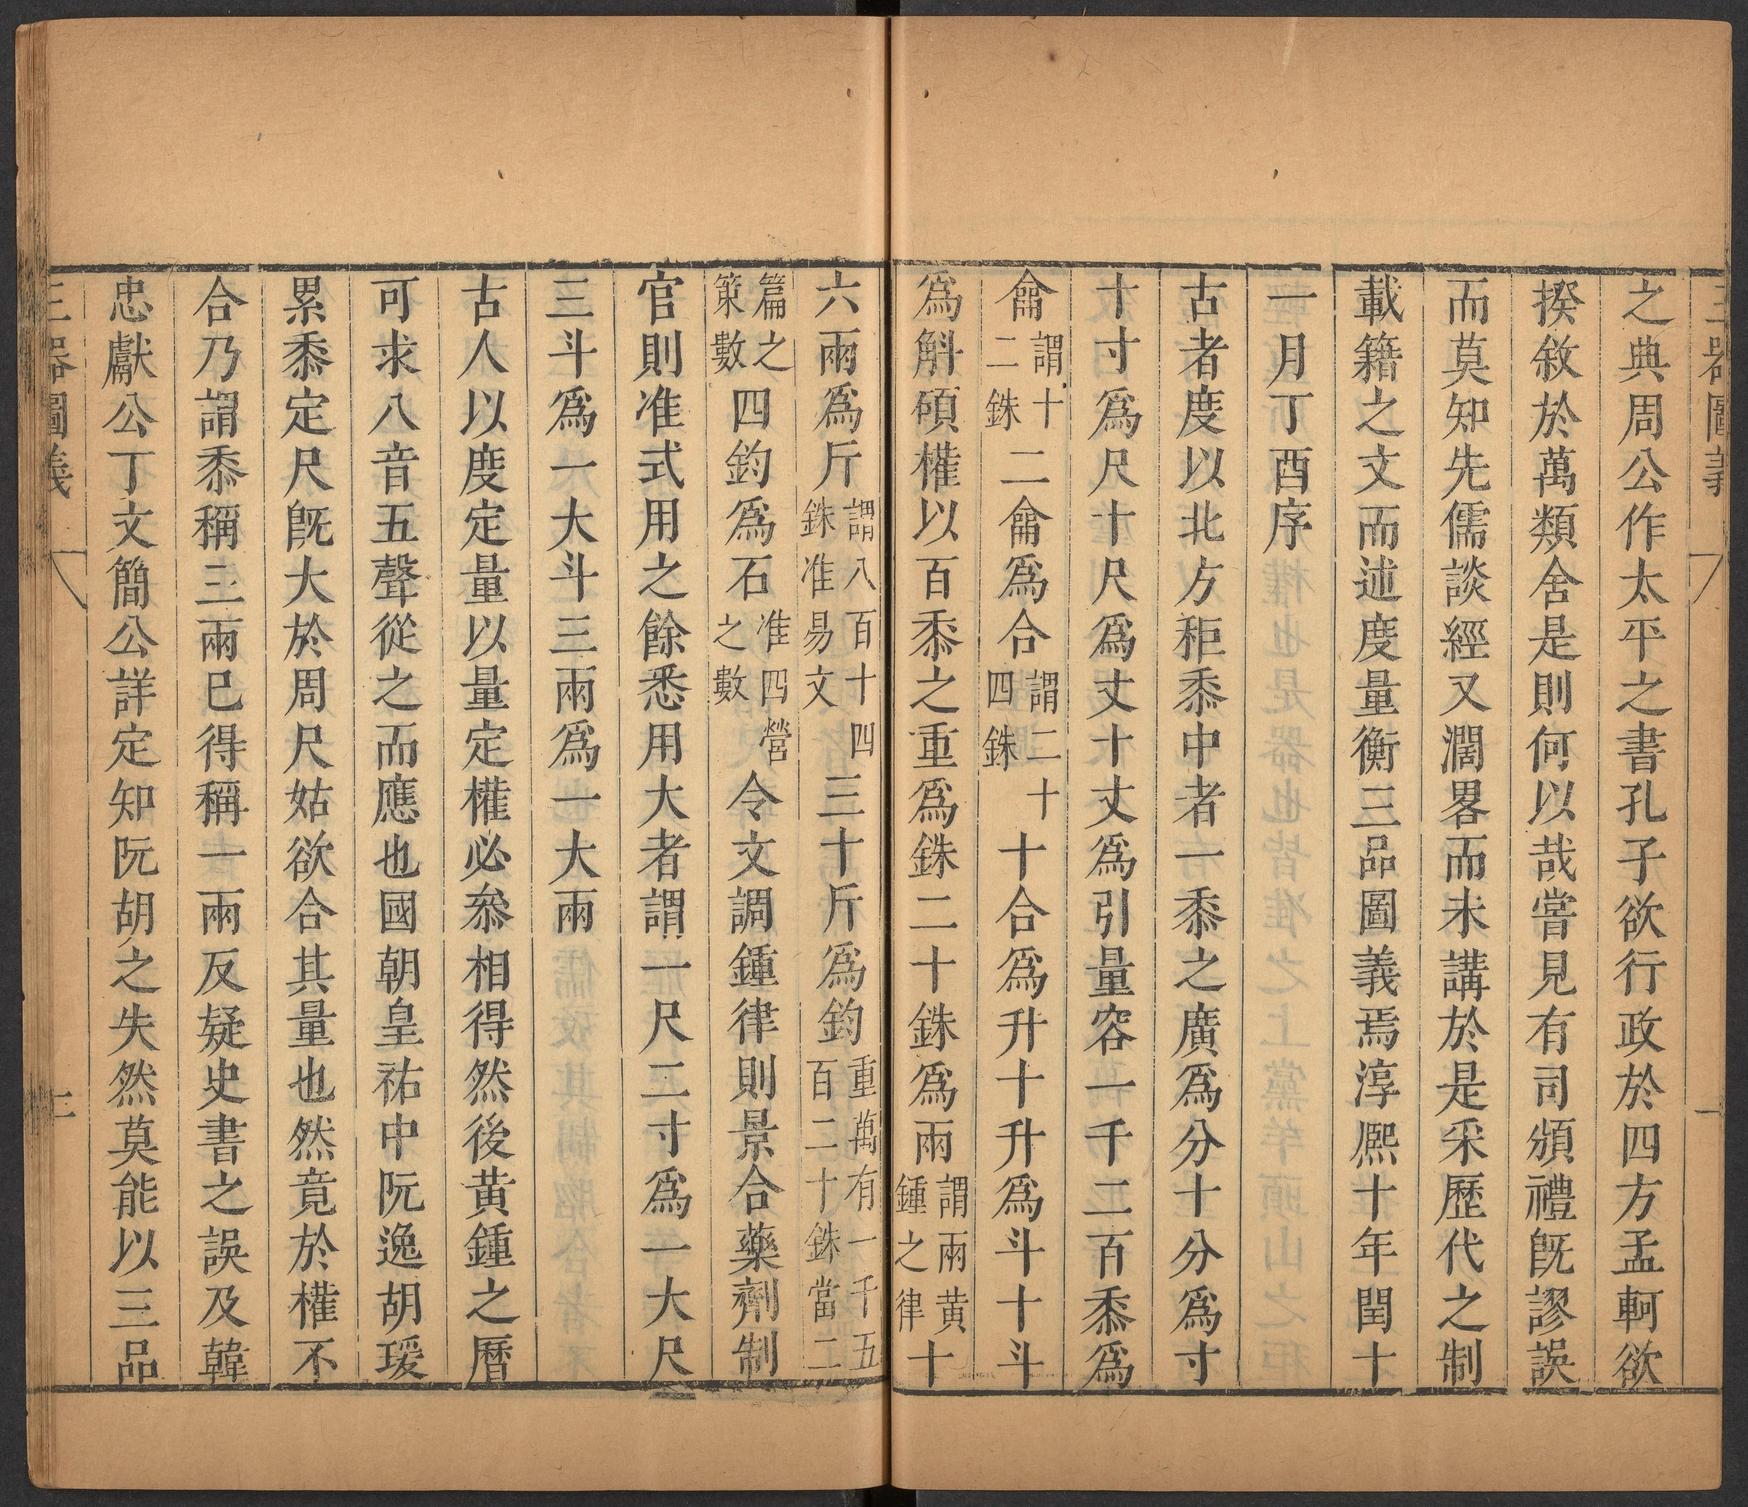 三器圖義
一
之典周公作太平之書孔子欲行政於四方孟軻欲
揆敘於萬類舍是則何以哉嘗見有司頒禮旣謬誤
而莫知先儒談經又濶畧而未講於是采歷代之制
載籍之文而述度量衡三品圖義焉淳熈十年閏十
一月丁酉序
古者度以北方秬黍中者一黍之廣爲分十分爲寸
十寸爲尺十尺爲丈十丈爲引量容一千二百黍爲
龠謂十二銖二龠爲合謂二十四銖十合爲升十升爲斗十斗
爲斛碩權以百黍之重爲銖二十銖爲兩謂兩黄鍾之律十
六兩爲斤謂八百十四銖准易文三十斤爲鈞重萬有一千五百二十銖當二
篇之策數四鈞爲石准四營之數令文調鍾律則景合藥劑制
官則准式用之餘悉用大者謂一尺二寸爲一大尺
三斗爲一大斗三兩爲一大兩
古人以度定量以量定權必叅相得然後黄鍾之曆
可求八音五聲從之而應也國朝皇祐中阮逸胡瑗
累黍定尺旣大於周尺姑欲合其量也然竟於權不
合乃謂黍稱三兩已得稱一兩反疑史書之誤及韓
忠獻公丁文簡公詳定知阮胡之失然莫能以三品
三器圖義
二